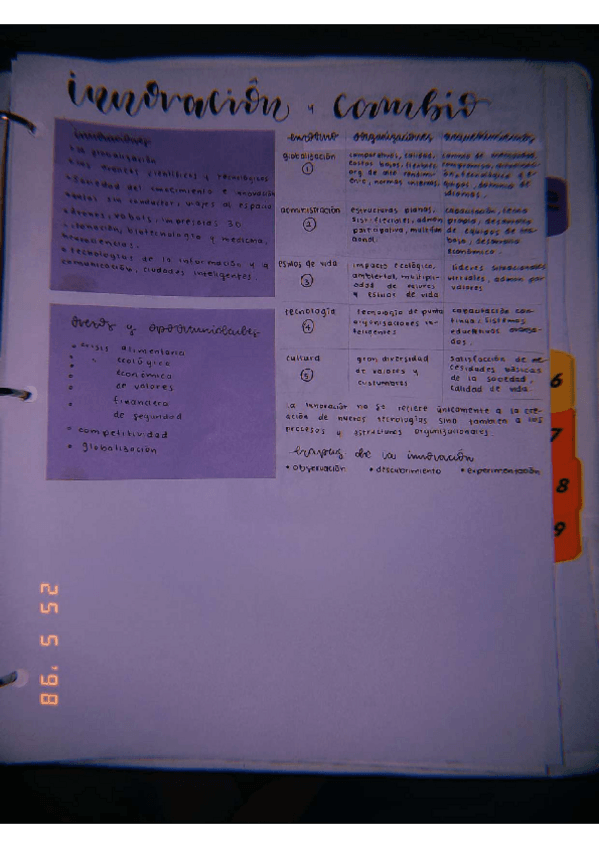 innovación y cambio
innovaciones
• la globalización
• los avances científicos y tecnológicos
• Sociedad del conocimiento e innovación
• autos sin conductor, viajes al espacio
• drones, robots, impresoras 3D
• clonación, biotecnología y medicina,
• tecnologías de la información y
comunicación, ciudades inteligentes.
retos y oportunidades
• crisis alimentaria
ecológica
económica
de valores
financiera
de seguridad
• competitividad
• globalización
entorno organizaciones requerimientos
globalización
1
competitivas, calidad,
costos bajos, flexibles,
org de alto rendimi-
ento, normas
idiomas.
administración
2
estructuras planas,
participativa, multifun
cional.
capacitación,
propio, desarrollo
de equipos de tra-
bajo, desarrollo
económico.
estilos de vida
3
impacto ecológico,
ambiental, multiplici-
dad de valores
y estilos de vida
líderes
virtuales, admon por
valores
tecnología
4
tecnología de punta
organizaciones in-
teligentes
capacitación con-
tinua, sistemas
educativos avanza-
dos.
cultura
5
gran diversidad
de valores y
costumbres
satisfacción de ne-
cesidades básicas
de la sociedad,
calidad de vida.
la innovación no se refiere únicamente a la cre-
ación de nuevas tecnologías sino también a los
procesos y estructuras organizacionales.
etapas de la innovación
• observación • descubrimiento • experimentación
6
7
8
9
86.'5 52